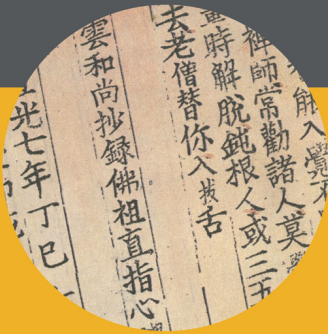 能入覺
禪師常勸諸人莫
時解脫鈍根人或三五
去老僧替你入拔舌
雲和尚抄錄佛祖直指心
光七年丁巳